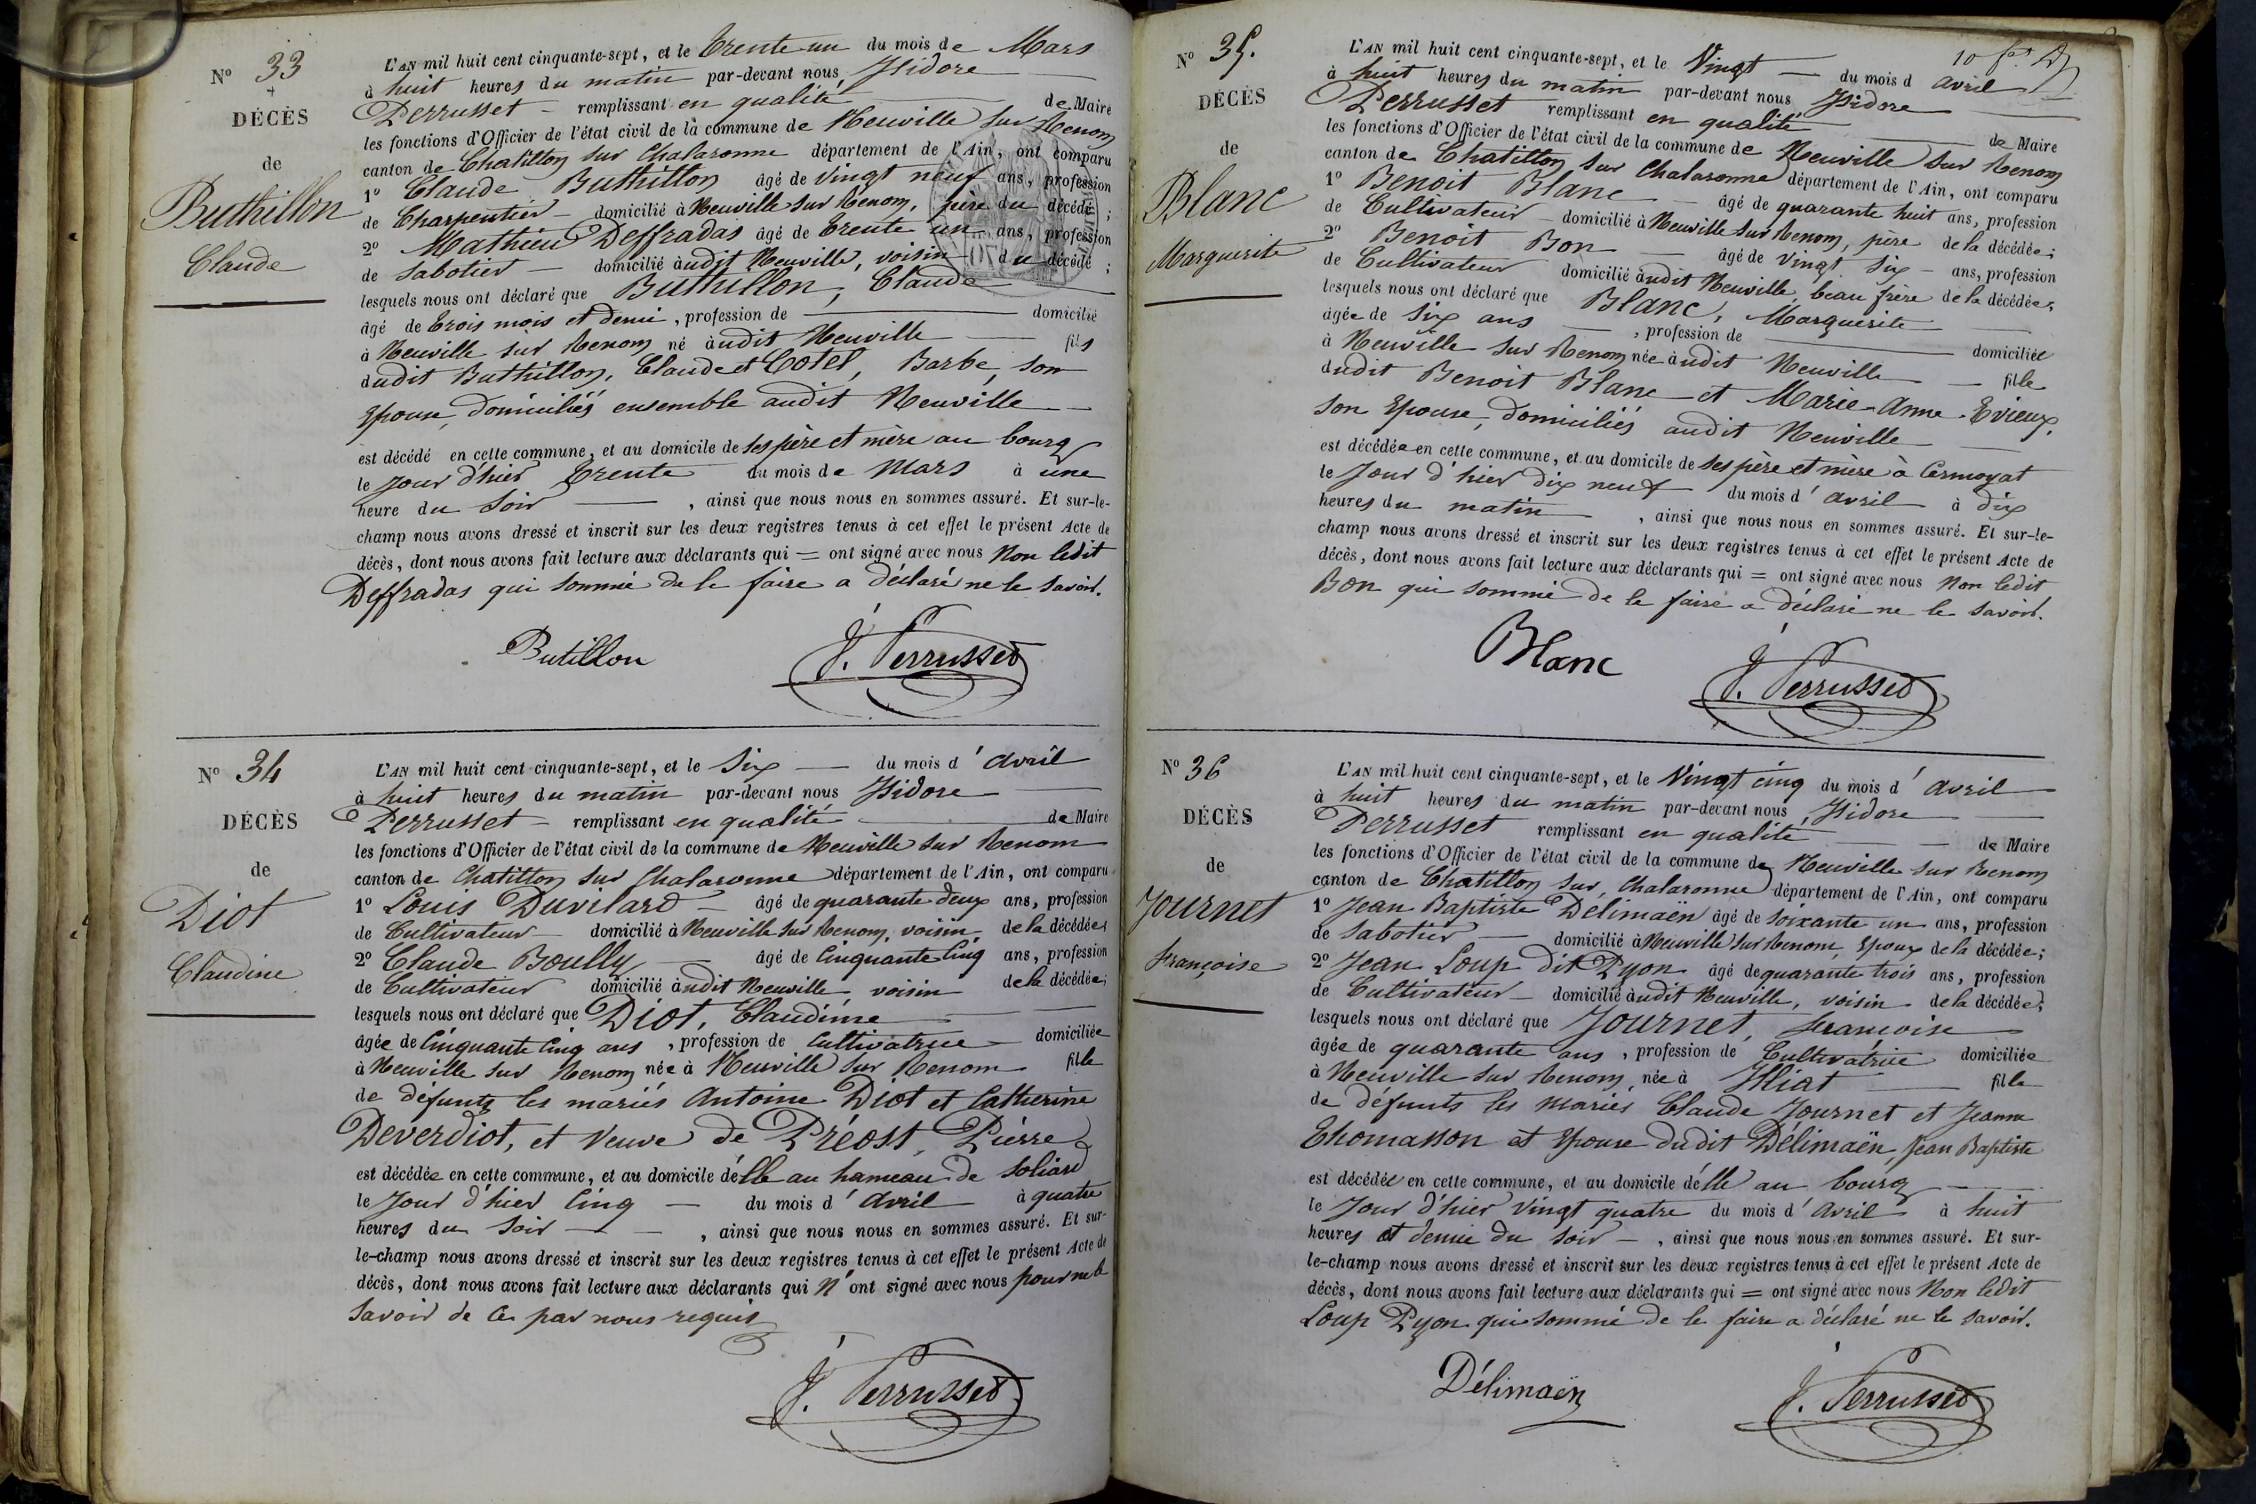 N° 33
DÉCÈS
de
Buthillon
Claude
L'AN mil huit cent cinquante-sept, et le Trente un du mois de Mars
à huit heures du matin par-devant nous Isidore
Perrusset remplissant en qualité de Maire
les fonctions d'Officier de l'état civil de la commune de Neuville sur Renom
canton de Chatillon sur Chalaronne département de l'Ain, ont comparu
1° Claude Buthillon âgé de vingt neuf ans, profession
de Charpentier domicilié à Neuville sur Renom, père du décédé ;
2° Mathieu Deffradas âgé de Trente un ans, profession
de Sabotier domicilié audit Neuville, voisin du décédé ;
lesquels nous ont déclaré que Buthillon, Claude
âgé de trois mois et demi, profession de domicilié
à Neuville sur Renom né audit Neuville fils
dudit Buthillon, Claude et Cotel, Barbe, son
Epouse, domiciliés ensemble audit Neuville
est décédé en cette commune, et au domicile de ses père et mère au bourg
le jour d'hier Trente du mois de Mars à une
heure du soir , ainsi que nous nous en sommes assuré. Et sur-le-
champ nous avons dressé et inscrit sur les deux registres tenus à cet effet le présent Acte de
décès, dont nous avons fait lecture aux déclarants qui = ont signé avec nous Non ledit
Deffradas qui sommé de le faire a déclaré ne le savoir.
Butillon J. Perrusset
N° 34
DÉCÈS
de
Diot
Claudine
L'AN mil huit cent cinquante-sept, et le Six du mois d'avril
à huit heures du matin par-devant nous Isidore
Perrusset remplissant en qualité de Maire
les fonctions d'Officier de l'état civil de la commune de Neuville sur Renom
canton de Chatillon sur Chalaronne département de l'Ain, ont comparu
1° Louis Duvilard âgé de quarante deux ans, profession
de Cultivateur domicilié à Neuville sur Renom, voisin de la décédée ;
2° Claude Boully âgé de Cinquante Cinq ans, profession
de Cultivateur domicilié audit Neuville voisin de la décédée ;
lesquels nous ont déclaré que Diot, Claudine
âgée de Cinquante Cinq ans, profession de Cultivatrice domiciliée
à Neuville sur Renom née à Neuville sur Renom fille
de défunts les mariés Antoine Diot et Catherine
Deverdiot, et veuve de Préost, Pierre
est décédée en cette commune, et au domicile d'elle au hameau de Soliard
le jour d'hier Cinq du mois d'avril à quatre
heures du soir , ainsi que nous nous en sommes assuré. Et sur-
le-champ nous avons dressé et inscrit sur les deux registres tenus à cet effet le présent Acte de
décès, dont nous avons fait lecture aux déclarants qui n'ont signé avec nous pour ne le
savoir de ce par nous requis
J. Perrusset
10 f.
N° 35.
DÉCÈS
de
Blanc
Marguerite
L'AN mil huit cent cinquante-sept, et le Vingt du mois d avril
à huit heures du matin par-devant nous Isidore
Perrusset remplissant en qualité de Maire
les fonctions d'Officier de l'état civil de la commune de Neuville sur Renom
canton de Chatillon sur Chalaronne département de l'Ain, ont comparu
1° Benoit Blanc âgé de quarante huit ans, profession
de Cultivateur domicilié à Neuville sur Renom, père de la décédée ;
2° Benoit Bon âgé de vingt six ans, profession
de Cultivateur domicilié audit Neuville, beau frère de la décédée ;
lesquels nous ont déclaré que Blanc, Marguerite
âgée de six ans , profession de domiciliée
à Neuville sur Renom née audit Neuville fille
dudit Benoit Blanc et Marie-Anne Evieux,
son Epouse, domiciliés audit Neuville
est décédée en cette commune, et au domicile de ses père et mère à Cermoyat
le jour d'hier dix neuf du mois d'avril à dix
heures du matin , ainsi que nous nous en sommes assuré. Et sur-le-
champ nous avons dressé et inscrit sur les deux registres tenus à cet effet le présent Acte de
décès, dont nous avons fait lecture aux déclarants qui = ont signé avec nous Non ledit
Bon qui sommé de le faire a déclaré ne le savoir.
Blanc J. Perrusset
N° 36
DÉCÈS
de
Journet
Françoise
L'AN mil huit cent cinquante-sept, et le Vingt cinq du mois d'avril
à huit heures du matin par-devant nous, Isidore
Perrusset remplissant en qualité de Maire
les fonctions d'Officier de l'état civil de la commune de Neuville sur Renom
canton de Chatillon sur Chalaronne département de l'Ain, ont comparu
1° Jean Baptiste Délimaën âgé de soixante un ans, profession
de Sabotier domicilié à Neuville sur Renom, Epoux de la décédée ;
2° Jean Loup dit Pyon âgé de quarante trois ans, profession
de Cultivateur domicilié audit Neuville, voisin de la décédée ;
lesquels nous ont déclaré que Journet, Françoise
âgée de quarante ans, profession de Cultivatrice domiciliée
à Neuville sur Renom, née à Illiat fille
de défunts les mariés Claude Journet et Jeanne
Thomasson et Epouse dudit Délimaën, Jean Baptiste
est décédée en cette commune, et au domicile d'elle au bourg
le jour d'hier vingt quatre du mois d'avril à huit
heures et demie du soir , ainsi que nous nous en sommes assuré. Et sur-
le-champ nous avons dressé et inscrit sur les deux registres tenus à cet effet le présent Acte de
décès, dont nous avons fait lecture aux déclarants qui = ont signé avec nous Non ledit
Loup Pyon qui sommé de le faire a déclaré ne le savoir.
Délimaën J. Perrusset